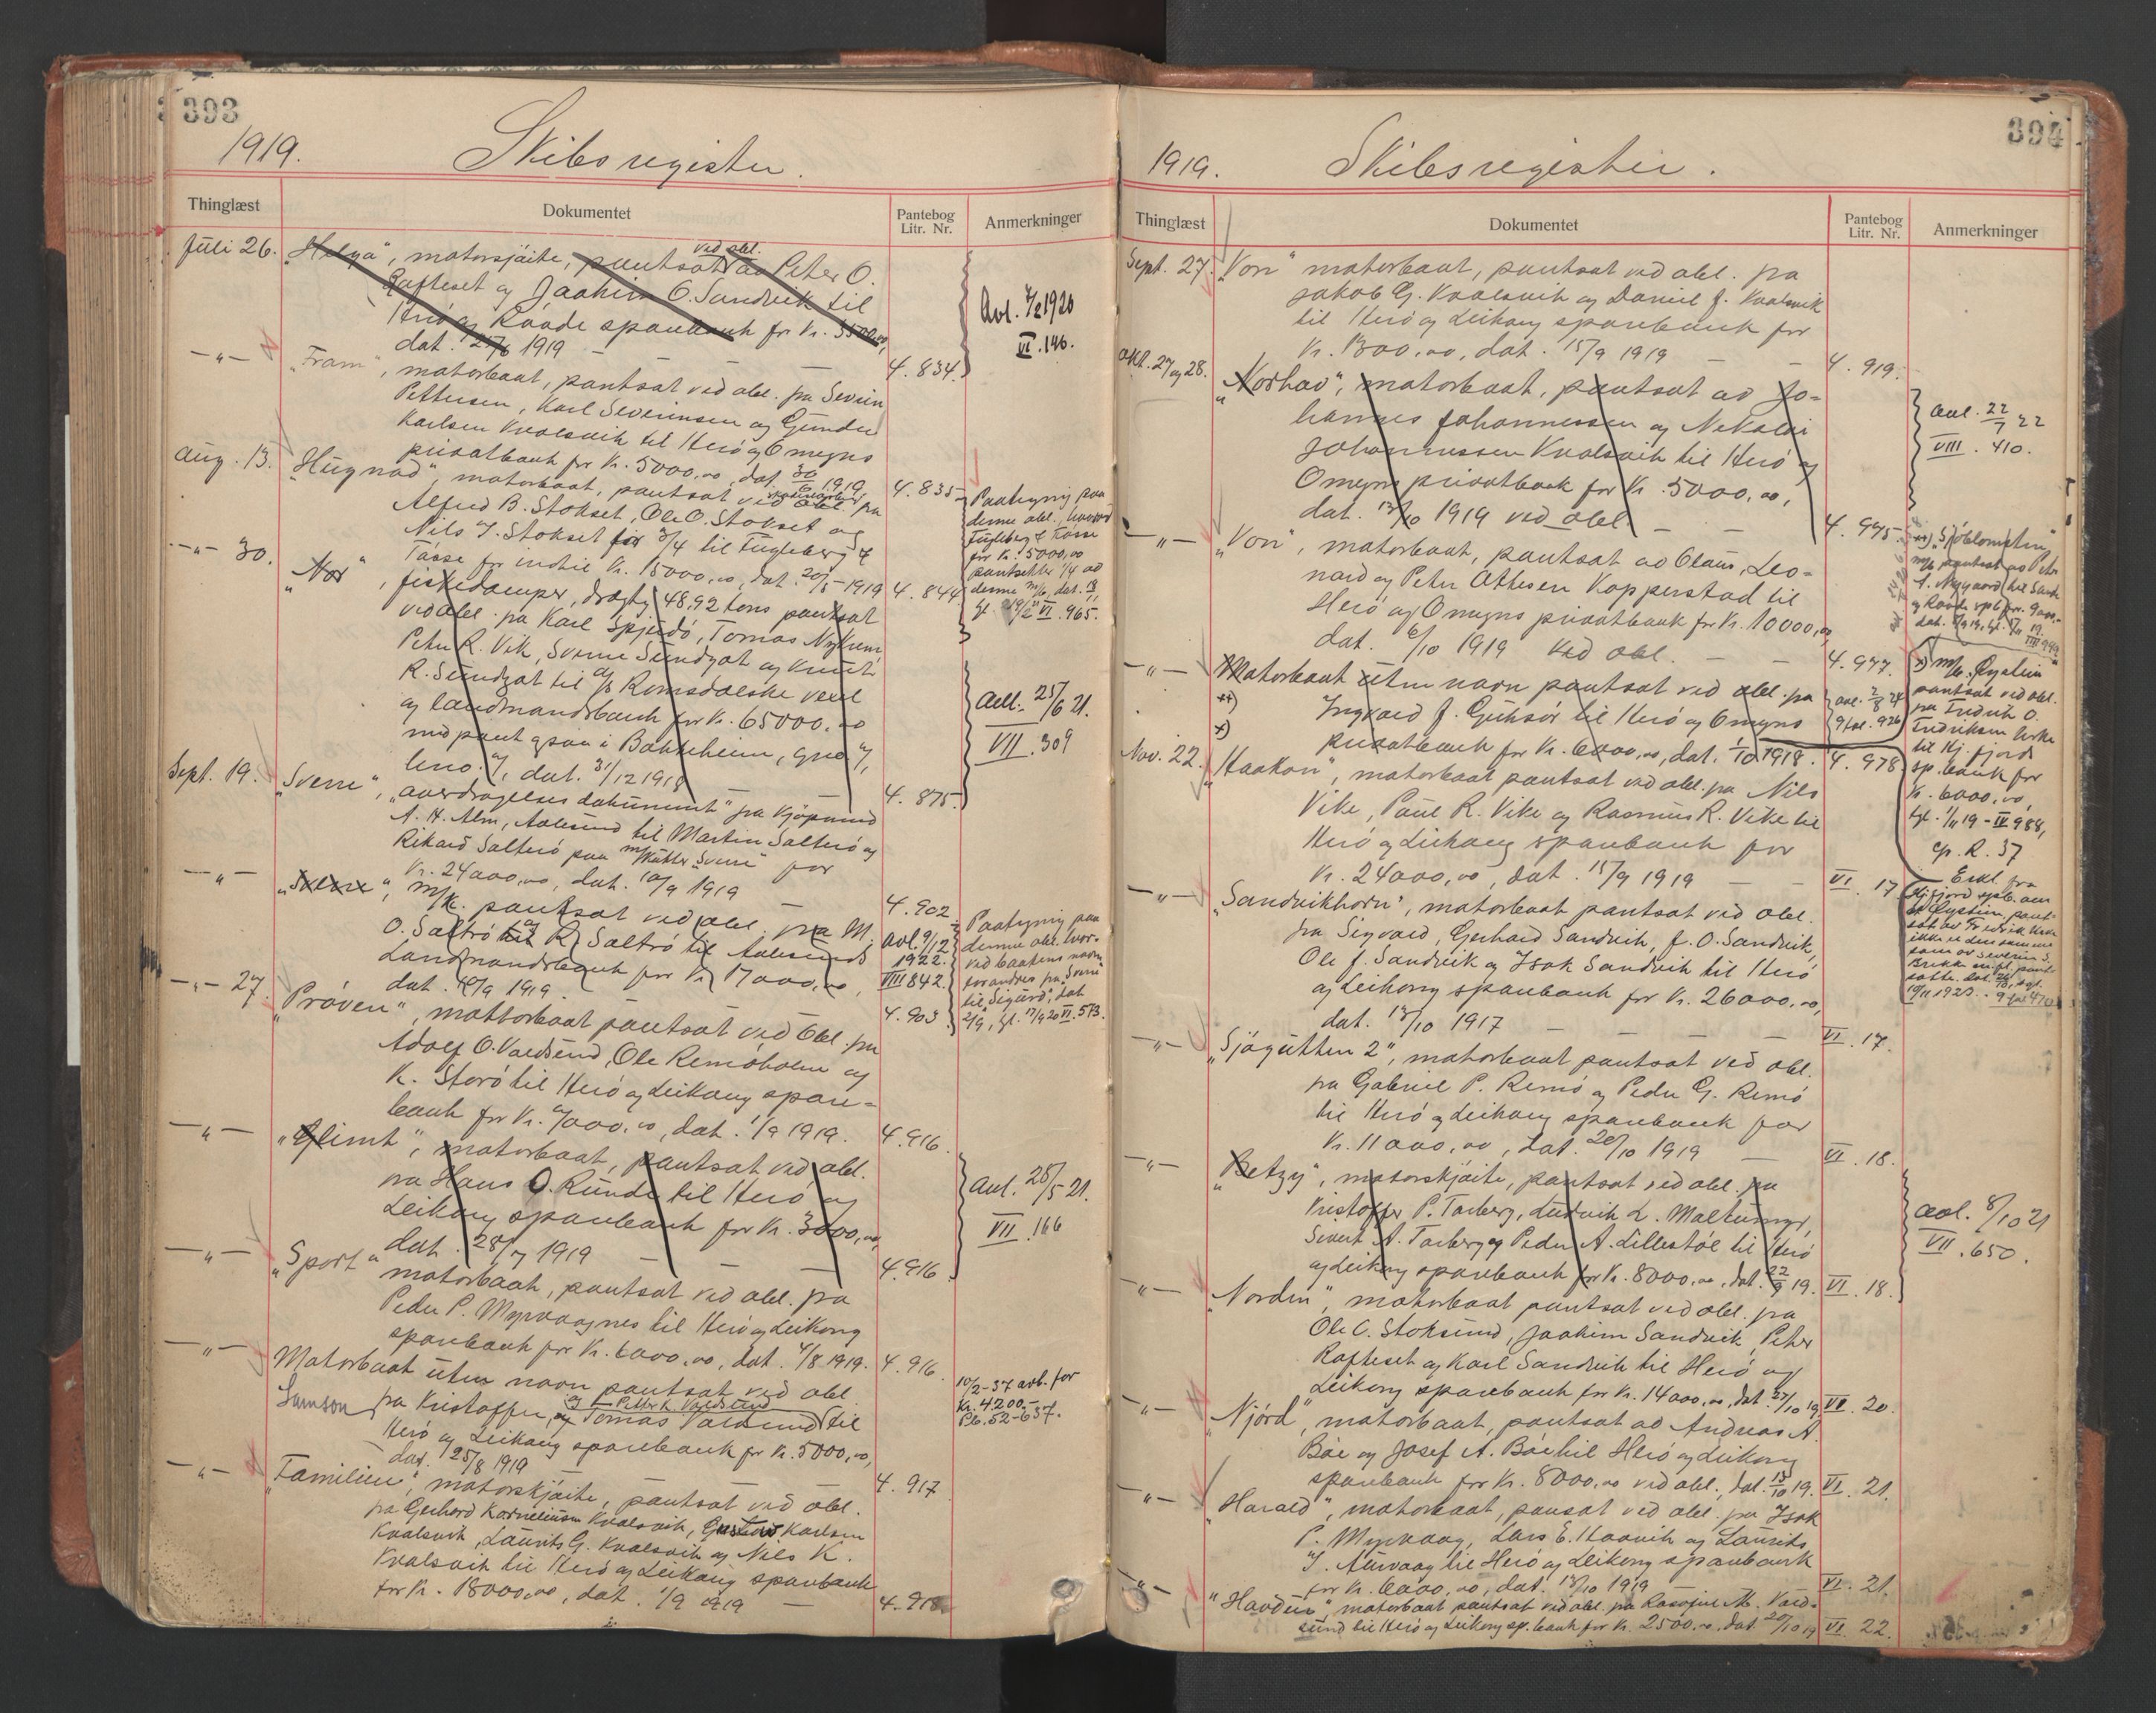 393
1919. Skibsregister.
Thinglæst Dokumentet Pantebog Litr. Nr. Anmerkninger
Juli 26. „Helga“, motorsjøite, pantsat ved obl. av Peter O.
Rafteset og Joakim O. Sandvik til
Herö og Røvde sparebank for Kr. 3500,00,
dat. 21/6 1919 — 4. 834.
Avl. 7/2 1920
VI. 146.
—„— „Fram“, motorbaat, pantsat ved obl. fra Severin
Pettersen, Karl Severinsen og Gunder
Karlsen Kvalsvik til Herö og Omegns
privatbank for Kr. 5000,00, dat. 30/6 1919. 4. 835.
Aug. 13. „Hugnad“, motorbaat, pantsat ved skadesløsbr. fra
Alfred B. Stokset, Ole O. Stokset og
Nils J. Stokset for 3/4 til Fugleberg &
Tösse for indtil Kr. 15000,00, dat. 20/5 1919 4. 844
Paategning paa
denne obl., hvorved
Fugleberg & Tösse
for Kr. 5000,00
pantsætter 1/4 av
denne m/b, dat.
VI. 965.
—„— 30. „Nor“, fiskedamper, drægtig 48,92 tons pantsat
ved obl. fra Karl Spjudö, Tomas Nykrem
Peter R. Vik, Sverre Sundgot og Knut
R. Sundgot til A/S Romsdalske vexel
og landmandsbank for Kr. 65000,00
med pant ogsaa i Bakkeheim, gno 7,
bno. 7, dat. 31/12 1918 4. 875.
Avl. 25/6 21.
VII. 309
Sept. 19. „Sverre“, „overdragelses dokument“ fra kjöpmand
A. H. Alm, Aalesund til Martin Salterö og
Rikard Salterö paa m/kutter „Sverre“ for
Kr. 24000,00, dat. 10/9 1919 4. 902
—„— „Sverre“, m/k. pantsat ved obl. fra M.
O. Saltrö og R. Saltrö til Aalesunds
Landmandsbank for Kr. 17000,00,
dat. 10/9 1919. 4. 903
avl. 9/12
1922.
VIII 842.
Paategning paa
denne obl. hvor-
ved baatens navn
forandres fra „Sverre“
til „Sigurd“, dat
2/9, tgl. 17/9 20 VI. 573.
—„— 27. „Pröven“, mottorbaat pantsat ved obl. fra
Adolf O. Voldsund, Ole Remöholm og
K. Storö til Herö og Leikang spare-
bank for Kr. 7000,00, dat. 1/9 1919. 4. 916
—„— „Glimt“, motorbaat, pantsat ved obl.
fra Hans O. Runde til Herö og
Leikang sparebank for Kr. 3000,00,
dat. 28/7 1919 — 4. 916
Avl. 28/5 21.
VII. 166
—„— „Sport“ motorbaat, pantsat ved obl. fra
Peder P. Myrvaagnes til Herö og Leikong
sparebank for Kr. 6000,00, dat. 4/8 1919. 4. 916
—„— Motorbaat uten navn pantsat ved obl.
Samson fra Kristoffer, og Tomas Voldsund og Petter K. Voldsund til
Herö og Leikang sparebank for Kr. 5000,00,
dat. 25/8 1919 4. 917
10/2-37 avb. for
Kr. 4200.-
Pb. 52-637.
—„— „Familien“, motorskjöite, pantsat ved obl.
fra Gerhard Korneliusen Kvalsvik, Gustav Karlsen
Kvalsvik, Laurits G. Kvalsvik og Nils K.
Kvalsvik til Herö og Leikang sparebank
for Kr. 18000,00, dat. 1/9 1919 — 4. 918

394
1919. Skibsregister.
Thinglæst Dokumentet Pantebog Litr. Nr. Anmerkninger
Sept. 27. „Von“ motorbaat, pantsat ved obl. fra
Jakob G. Kvalsvik og Daniel J. Kvalsvik
til Herö og Leikang sparebank for
Kr. 1300,00, dat. 15/9 1919 — 4. 919.
Okt. 27 og 28. „Norhav“, motorbaat, pantsat av Jo-
hannes Johannessen og Nikolai
Johannessen Kvalsvik til Herö og
Omegns privatbank for Kr. 5000,00,
dat. 13/10 1919 ved obl. — 4. 975.
avl. 22/7 22
VIII. 410.
—„— „Von“, motorbaat, pantsat av Olaus, Leo-
nard og Peter Attesen Kopperstad til
Herö og Omegns privatbank for Kr. 10000,00
dat. 6/10 1919 ved obl. — 4. 977.
**) „Sjöblomsten“
m/b pantsat av Peter
A. Nygaard til Sande
og Røvde spb for 9000.-
VIII 949
—„— Motorbaat uten navn pantsat ved obl. fra
**) Ingvald J. Gjuksör til Herö og Omegns
*) privatbank for Kr. 6000,00, dat. 1/10 1918. 4. 978
avl. 2/8 24
9 fol. 926
*) m/b. Øystein
pantsat ved obl.
fra Fredrik O.
Fredriksen Kirke
til Hj. fjord
sp.bank for
Kr. 6000,00,
tgl. 1/11 19 - IV 988,
cp. R. 37
Erkl. fra
Hj.fjord spb. om
at Øystein pant-
sat av Fredrik
ikke er den samme
som av Severin S.
19/11 1923. - 9 fol 470
Nov. 22. „Haakon“, motorbaat pantsat ved obl. fra Nils
Vike, Paul R. Vike og Rasmus R. Vike til
Herö og Leikang sparebank for
Kr. 24000,00, dat. 15/9 1919 — VI. 17
—„— „Sandvikhorn“, motorbaat pantsat ved obl.
fra Sigvald, Gerhard Sandvik, J. O. Sandvik,
Ole J. Sandvik og Isak Sandvik til Herö
og Leikong sparebank for Kr. 26000,00,
dat. 13/10 1917 — VI. 17.
—„— „Sjøgutten 2“, motorbaat pantsat ved obl.
fra Gabriel P. Remö og Peder G. Remö
til Herö og Leikang sparebank for
Kr. 11000,00, dat. 20/10 1919 — VI. 18.
—„— „Betzy“, motorskjöite, pantsat ved obl. fra
Kristoffer P. Tarberg, Ludvik L. Moltumyr,
Sivert A. Tarberg og Peder A. Lillestöl til Herö
og Leikong sparebank for Kr. 8000,00, dat. 22/9 19. VI. 18.
avl. 8/10 21
VII. 650.
—„— „Norden“, motorbaat pantsat ved obl. fra
Ole C. Stoksund, Joakim Sandvik, Peter
Rafteset og Karl Sandvik til Herö og
Leikong sparebank for Kr. 14000,00, dat. 27/10 19 VI. 20.
—„— „Njörd“, motorbaat, pantsat av Andreas A.
Böe og Josef A. Böe til Herö og Leikong
sparebank for Kr. 8000,00 ved obl., dat. 13/10 19. VI. 21.
—„— „Harald“, motorbaat, pansat ved obl. fra Isak
P. Myrvaag, Lars E. Haavik og Laurits
J. Aurvaag til Herö og Leikong sparebank
for Kr. 6000,00, dat. 13/10 1919 VI. 21.
—„— „Havdur“, motorbaat pantsat ved obl. fra M. Vold-
sund til Herö og Leikong sp.bank for Kr. 2500,00, dat. 20/10 19 VI. 22.